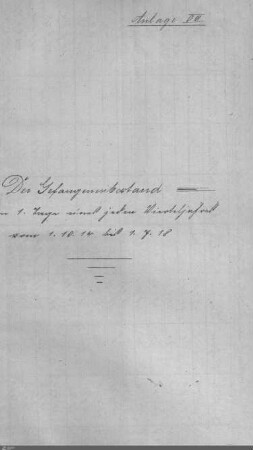 Anlage VII.
Der Gefangenenbestand
m 1. Tage eines jeden Vierteljahres
vom 1.10.14 bis 1.7.18